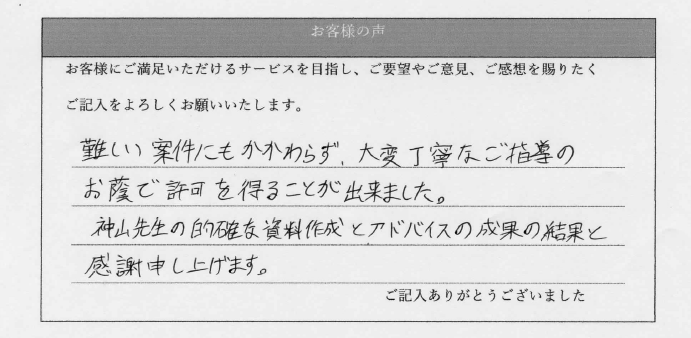 お客様の声
お客様にご満足いただけるサービスを目指し、ご要望やご意見、ご感想を賜りたく
ご記入をよろしくお願いいたします。
難しい案件にもかかわらず、大変丁寧なご指導の
お蔭で許可を得ることが出来ました。
神山先生の的確な資料作成とアドバイスの成果の結果と
感謝申し上げます。
ご記入ありがとうございました